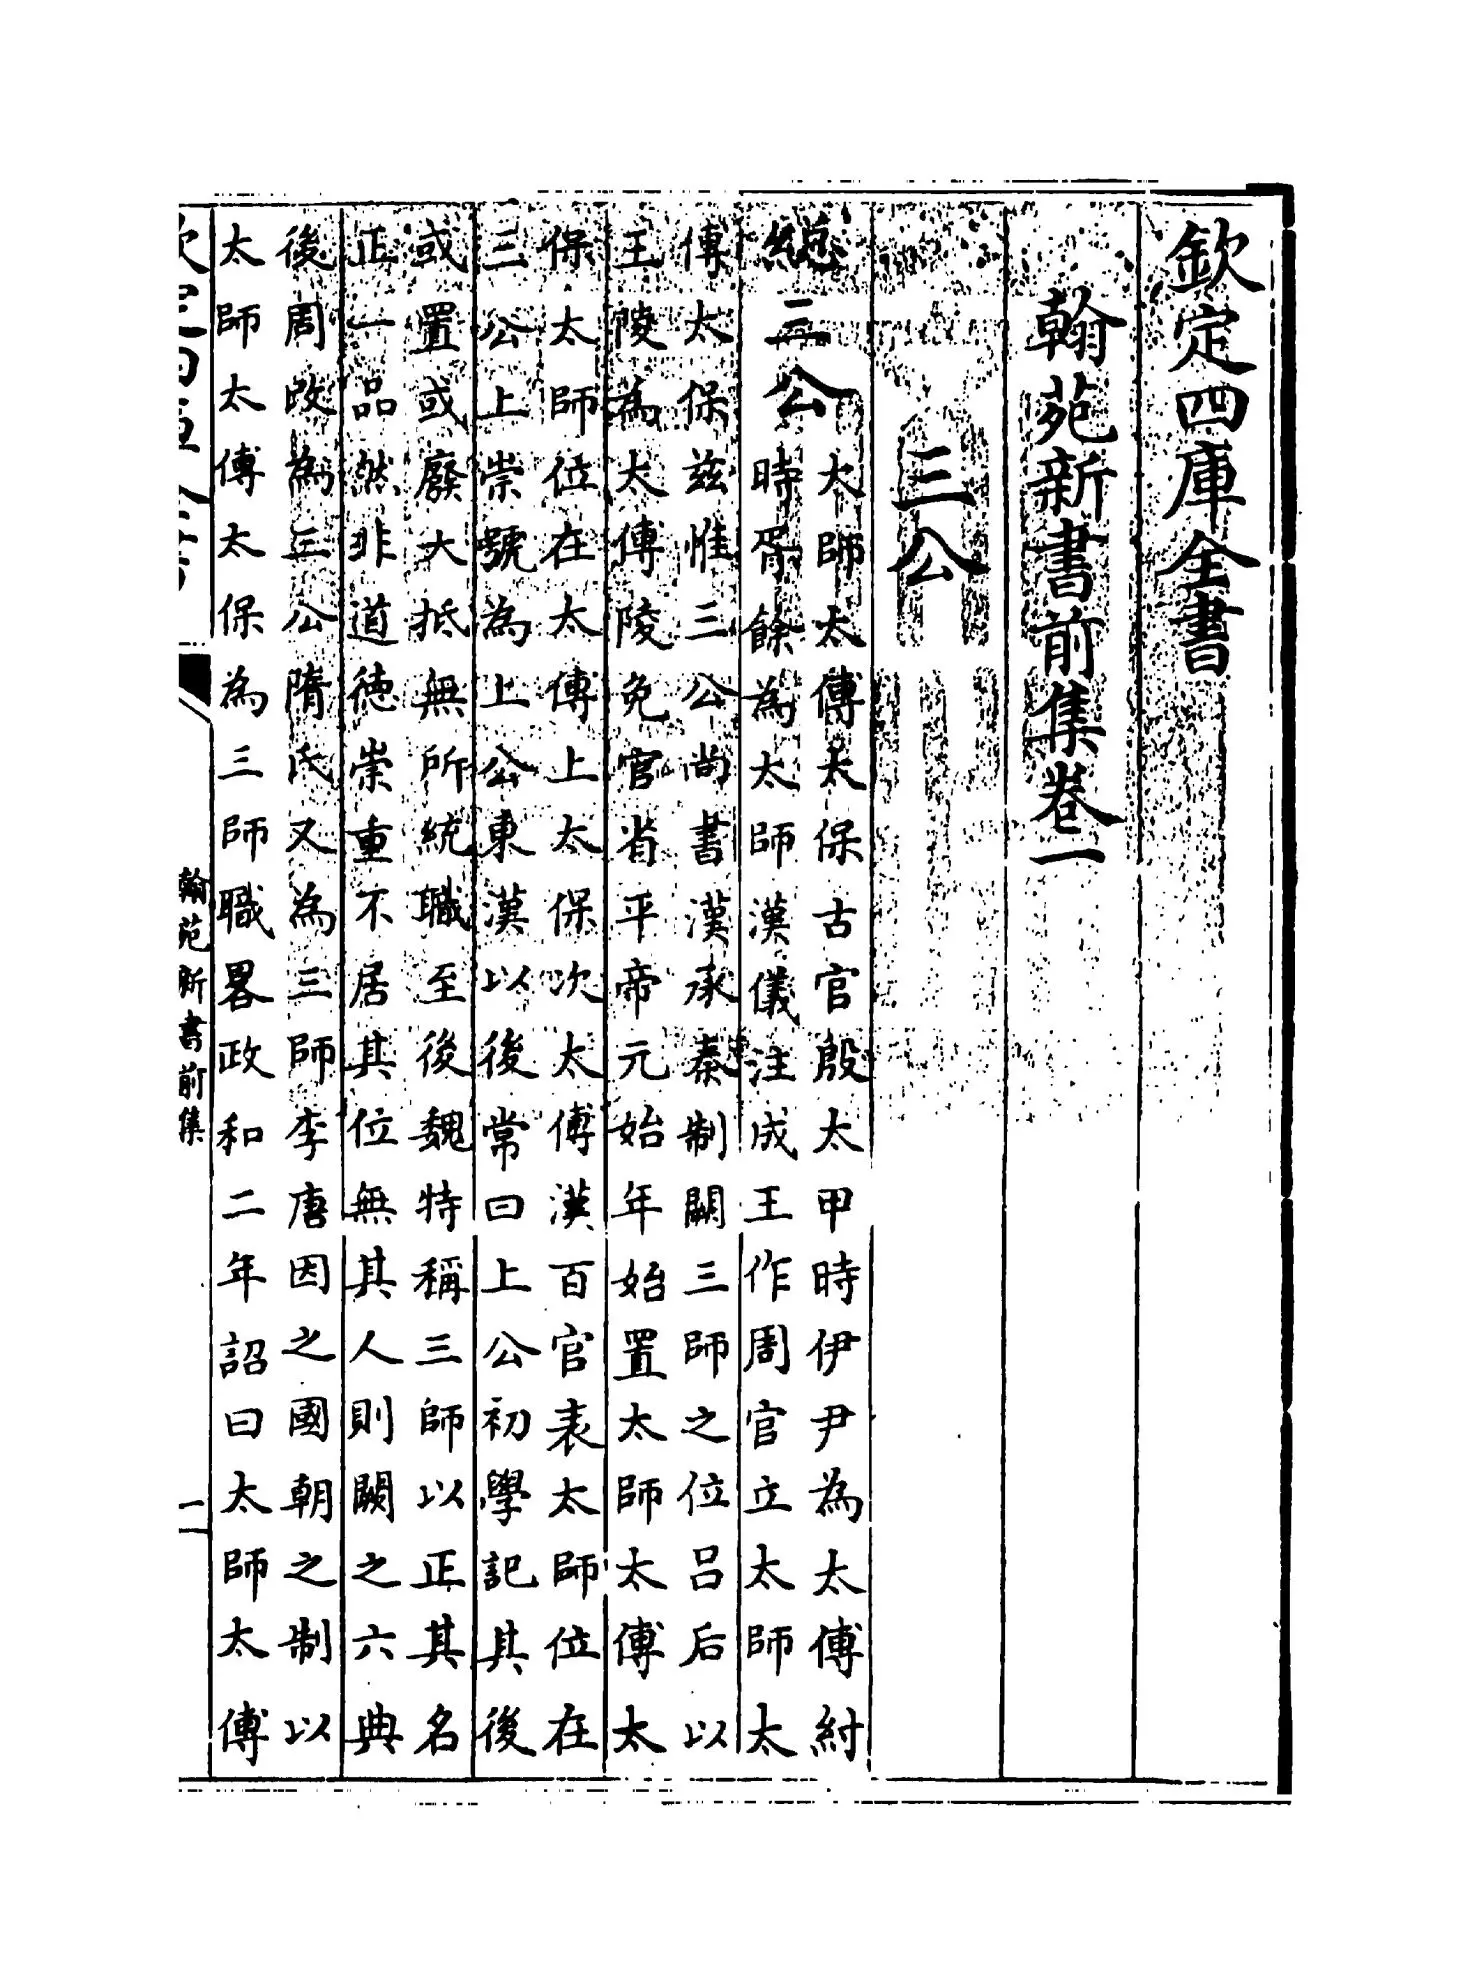 欽定四庫全書
翰苑新書前集卷一
三公
總三公
太師太傅太保古官殷太甲時伊尹為太傅紂
時胥餘為太師漢儀注成王作周官立太師太
傅太保兹惟三公尚書漢承秦制闕三師之位吕后以
王陵為太傅陵免官省平帝元始年始置太師太傅太
保太師位在太傅上太保次太傅漢百官表太師位在
三公上崇號為上公東漢以後常曰上公初學記其後
或置或廢大抵無所統職至後魏特稱三師以正其名
正一品然非道徳崇重不居其位無其人則闕之六典
後周改為三公隋氏又為三師李唐因之國朝之制以
太師太傅太保為三師職畧政和二年詔曰太師太傅
翰苑新書前集
一